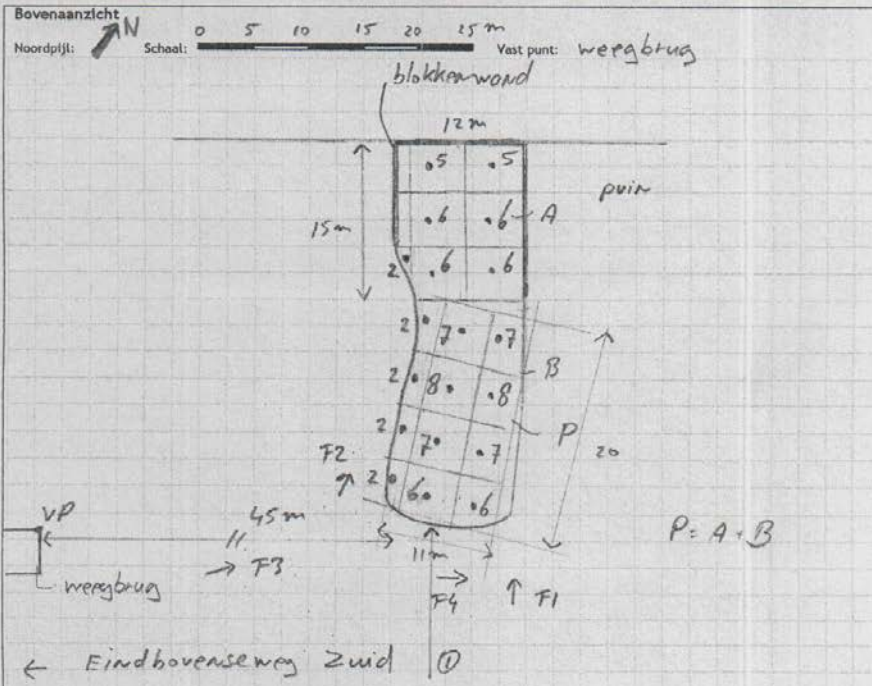 Bovenaanzicht
Noordpijl: N Schaal: 0 5 10 15 20 25 m Vast punt: weegbrug
blokkenwand
12m
5 5
puin
15m 6 6 A
2 6 6
2 7 7
B
2 8 8
P
2 7 7 20
F2
2 6 6
VP 45m P = A + B
11m
F3
weegbrug F4 F1
← Eindhovenseweg Zuid ①